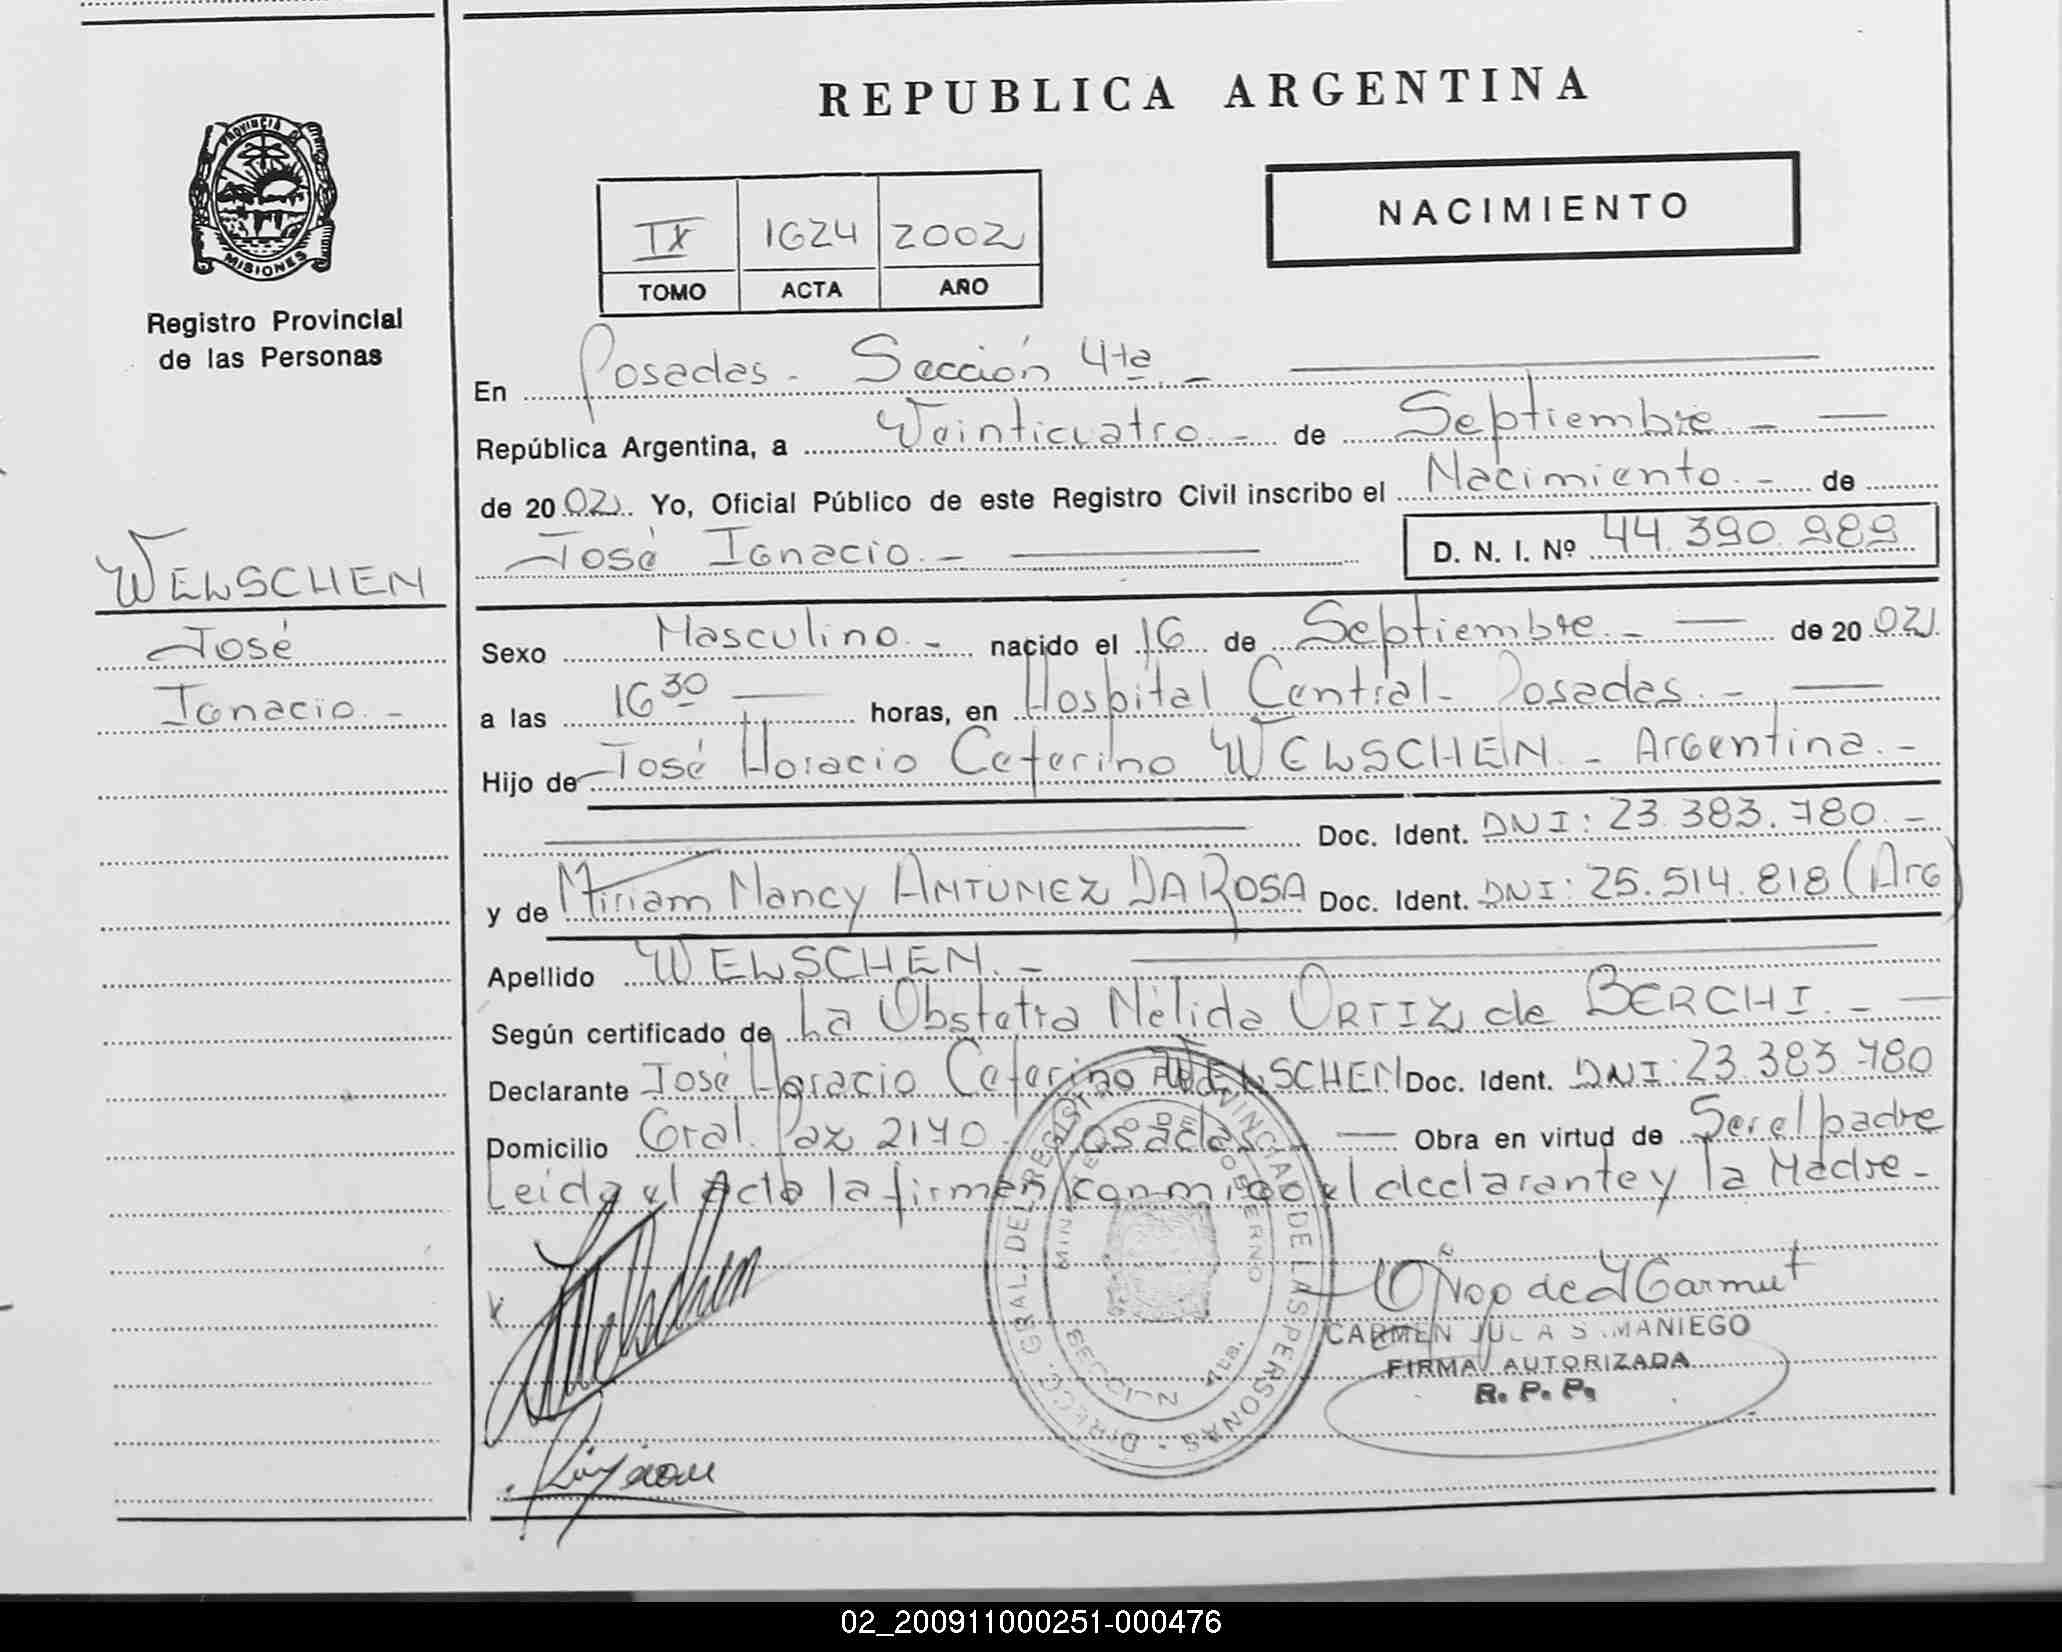 REPUBLICA ARGENTINA
NACIMIENTO
IX 1624 2002
TOMO ACTA AÑO
PROVINCIA DE
MISIONES
Registro Provincial
de las Personas
WELSCHEN
José
Ignacio.-
En Posadas.- Sección 4ta.-
República Argentina, a Veinticuatro.- de Septiembre.-
de 2002. Yo, Oficial Público de este Registro Civil inscribo el Nacimiento.- de
José Ignacio.- D. N. I. Nº 44.390.989
Sexo Masculino.- nacido el 16 de Septiembre.- de 2002.
a las 16 30 horas, en Hospital Central- Posadas.-
Hijo de José Horacio Ceferino WELSCHEN.- Argentina.-
Doc. Ident. DNI: 23.383.780.-
y de Miriam Nancy ANTUNEZ DA ROSA Doc. Ident. DNI: 25.514.818 (Arg)
Apellido WELSCHEN.-
Según certificado de La Obstetra Nélida ORTIZ de BERCHI.-
Declarante José Horacio Ceferino WELSCHEN Doc. Ident. DNI: 23.383.780
Domicilio Gral. Paz 2140. Posadas.- Obra en virtud de Ser el padre
Leida el Acta la firman conmigo el declarante y la Madre.-
DIRECC. GRAL. DEL REGISTRO PROVINCIAL DE LAS PERSONAS
GOBIERNO
SECCION 4ta.
CARMEN JULIA SAMANIEGO
FIRMA AUTORIZADA
R. P. P.
02_200911000251-000476